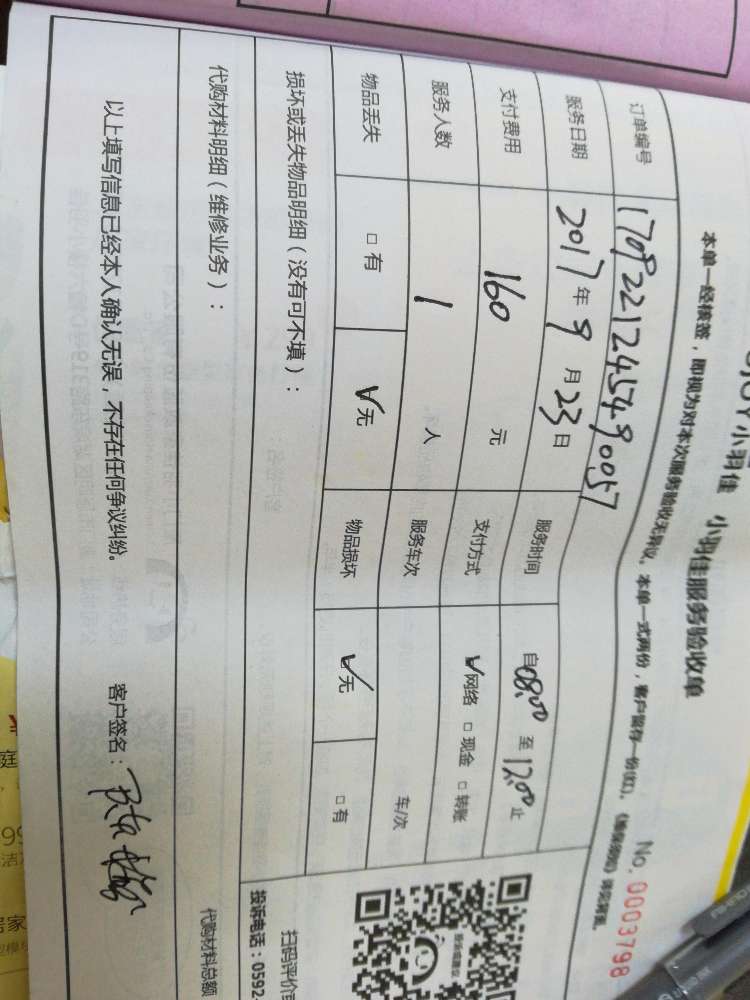 小羽佳 小羽佳服务验收单
No. 0003798
本单一经核签，即视为对本次服务验收无异议。本单一式两份，客户留存一份(红)。
订单编号 1709221245490057
服务日期 2017年9月23日 服务时间 自08:00至12:00止
支付费用 160 元 支付方式 ✓网络 □现金 □转账
服务人数 1 人 服务车次 车/次
物品丢失 □有 ✓无 物品损坏 ✓无 □有
损坏或丢失物品明细（没有可不填）：
代购材料明细（维修业务）：
代购材料总额
以上填写信息已经本人确认无误，不存在任何争议纠纷。 客户签名：
扫码评价
投诉电话：0592-